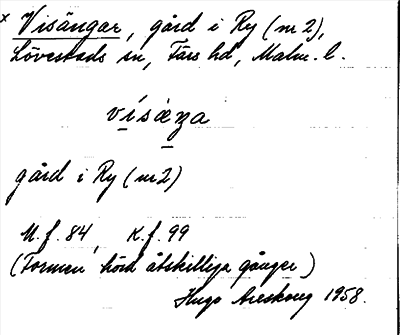 x Visängar, gård i Ry (nr 2),
Lövestads sn, Färs hd, Malm. l.
vísæŋa
gård i Ry (nr 2)
M. f. 84 K. f. 99
(Formen hörd åtskilliga gånger)
Hugo Areskoug 1958.